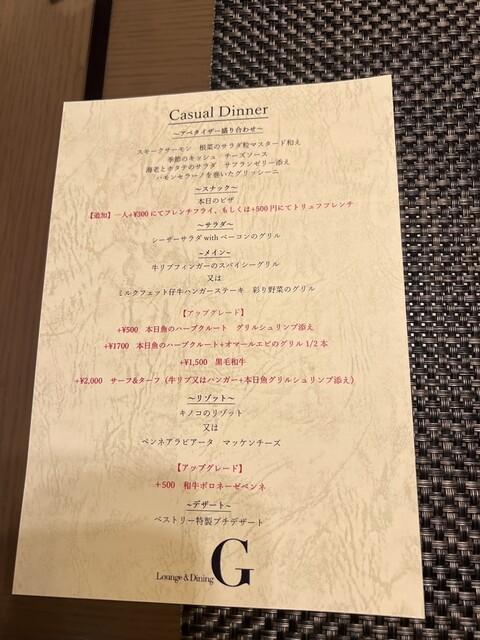 Casual Dinner
～アペタイザー盛り合わせ～
スモークサーモン　根菜のサラダ粒マスタード和え
季節のキッシュ　チーズソース
海老とホタテのサラダ　サフランゼリー添え
ハモンセラーノを巻いたグリッシーニ
～スナック～
本日のピザ
【追加】一人+¥300にてフレンチフライ、もしくは+500円にてトリュフフレンチ
～サラダ～
シーザーサラダ withベーコンのグリル
～メイン～
牛リブフィンガーのスパイシーグリル
又は
ミルクフェット仔牛ハンガーステーキ　彩り野菜のグリル
【アップグレード】
+¥500　本日魚のハーブクルート　グリルシュリンプ添え
+¥1700　本日魚のハーブクルート+オマールエビのグリル 1/2 本
+¥1,500　黒毛和牛
+¥2,000　サーフ&ターフ（牛リブ又はハンガー+本日魚グリルシュリンプ添え）
～リゾット～
キノコのリゾット
又は
ペンネアラビアータ　マッケンチーズ
【アップグレード】
＋500　和牛ボロネーゼペンネ
～デザート～
ペストリー特製プチデザート
Lounge & Dining G